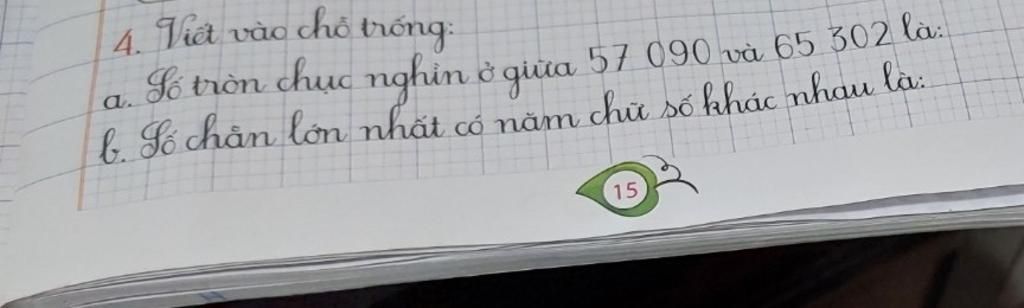 4. Viết vào chỗ trống:
a. Số tròn chục nghìn ở giữa 57 090 và 65 302 là:
b. Số chẵn lớn nhất có năm chữ số khác nhau là:
15